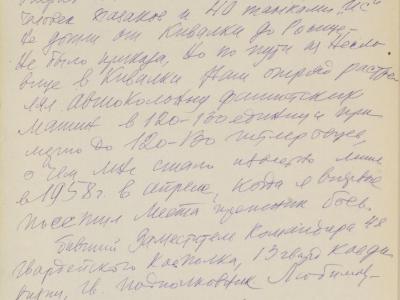 человек казаков и 40 танками. Ис
Не дошли от Кивалки до Росице-
Не было приказа, Но по пути из
вице в Кивалки Наш отряд расстре
лял автоколонну фашистских
машин в 120-130 единиц и при
мерно до 120-130 гитлеровцев,
о чем мне стало известно лишь
в 1958 г. в апреле, когда я впервые
посетил места прошлых боев.
Бывший Заместитель Командира 48
гвардейского Кавполка, 13 гвард кавди
визии, гв. подполковник